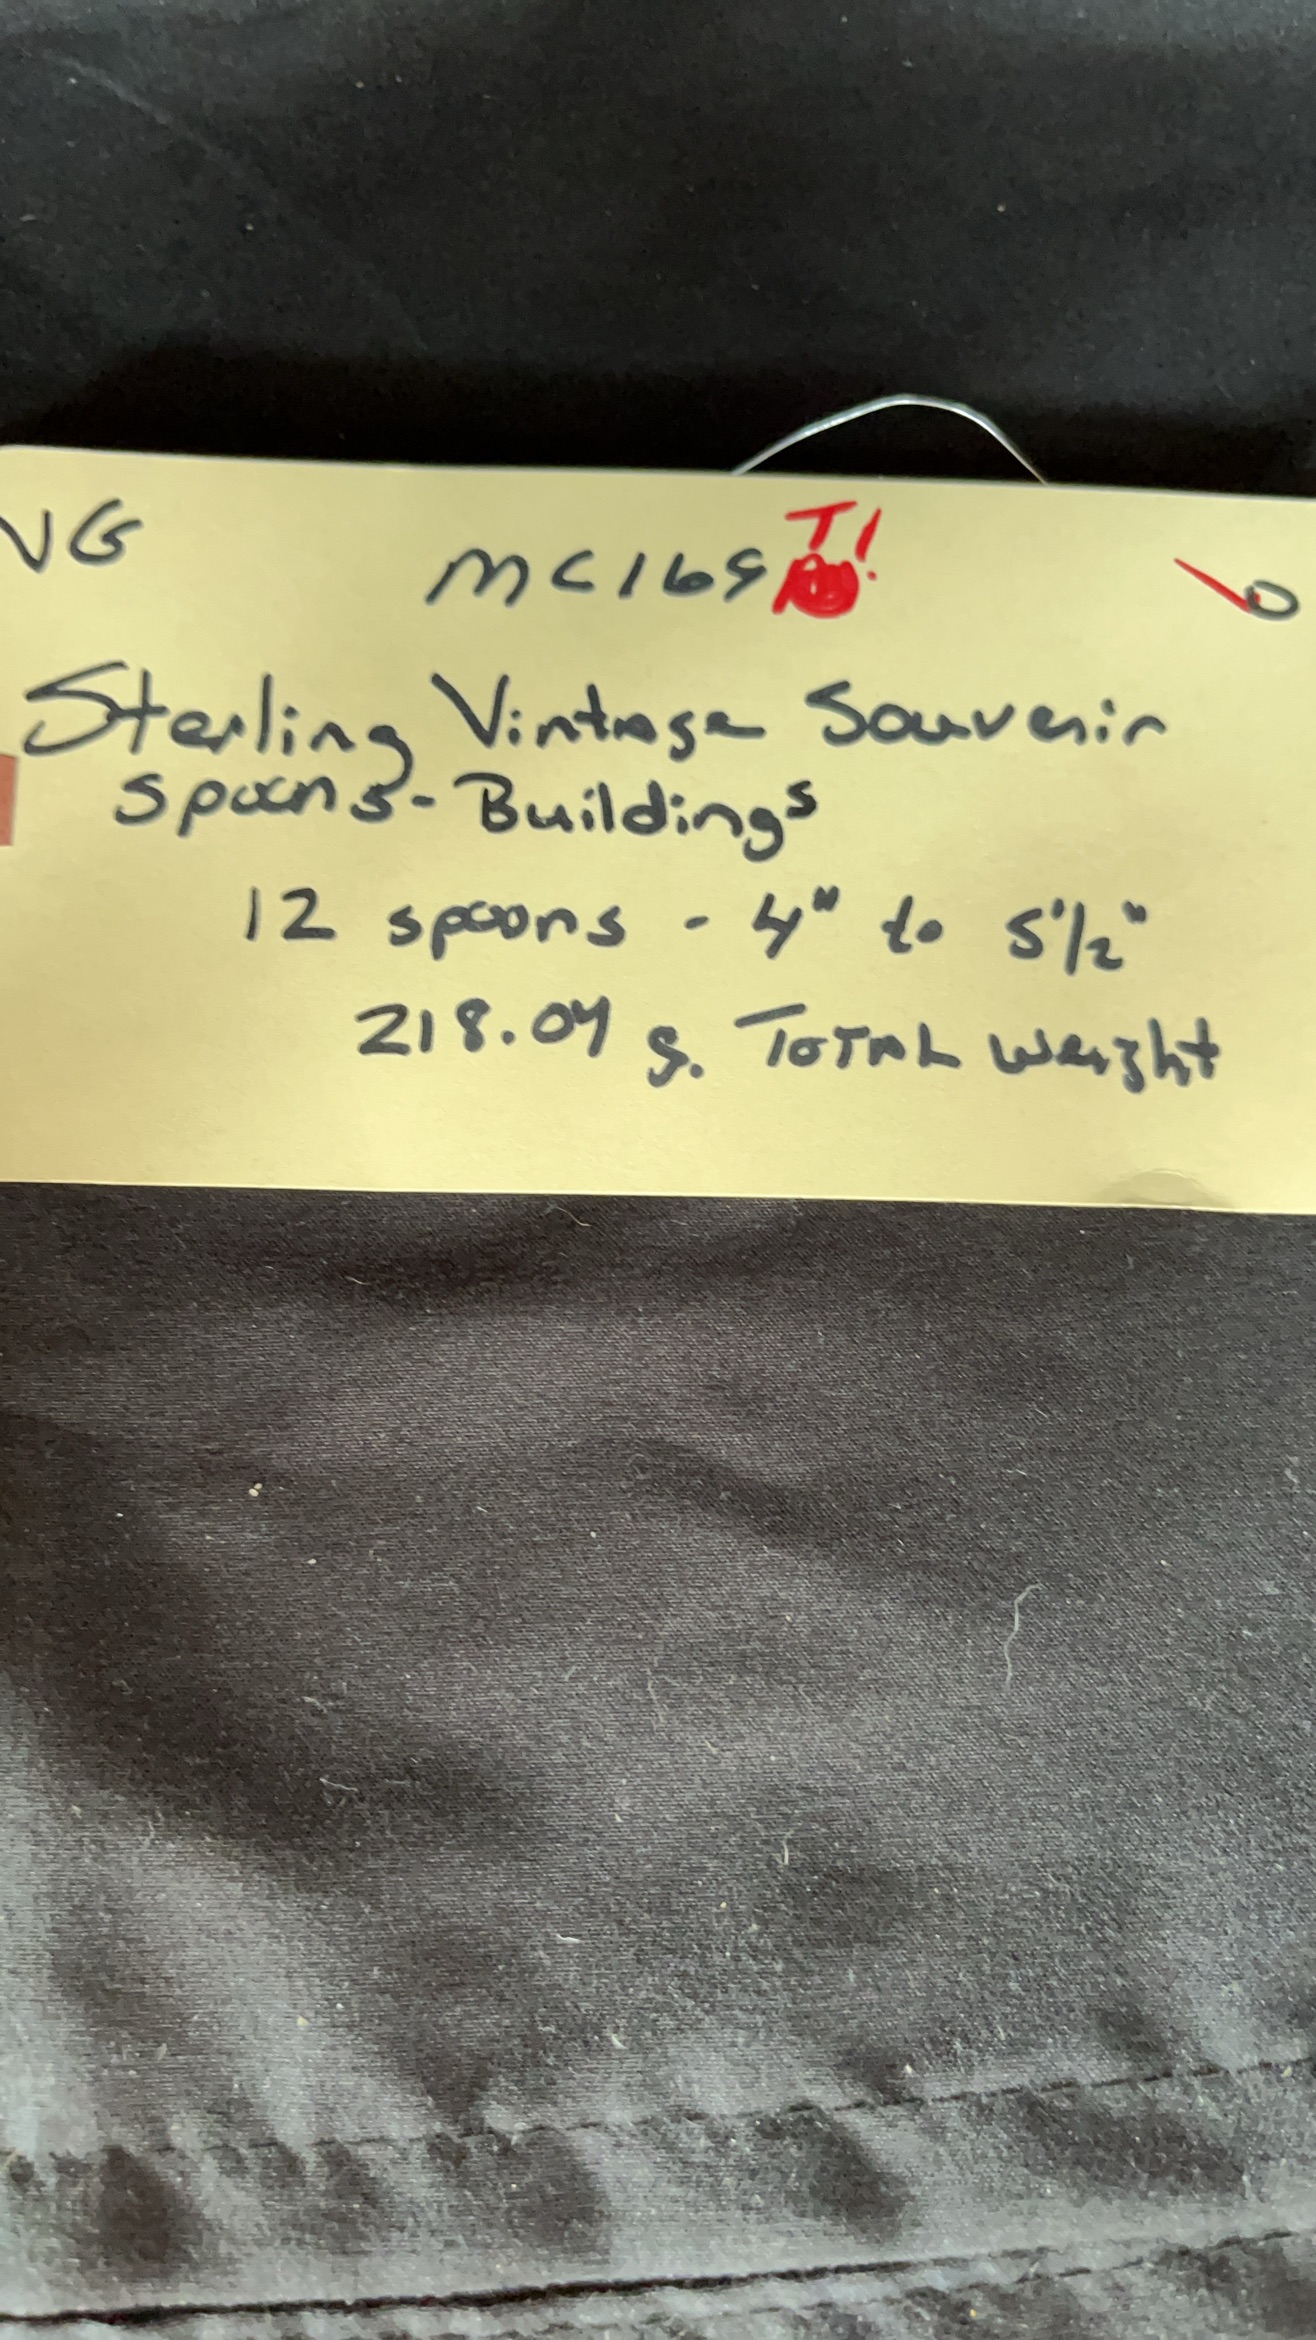 VG MC169 T!
Sterling Vintage Souvenir
Spoons - Buildings
12 spoons - 4" to 5 1/2"
218.04 g. TOTAL Weight